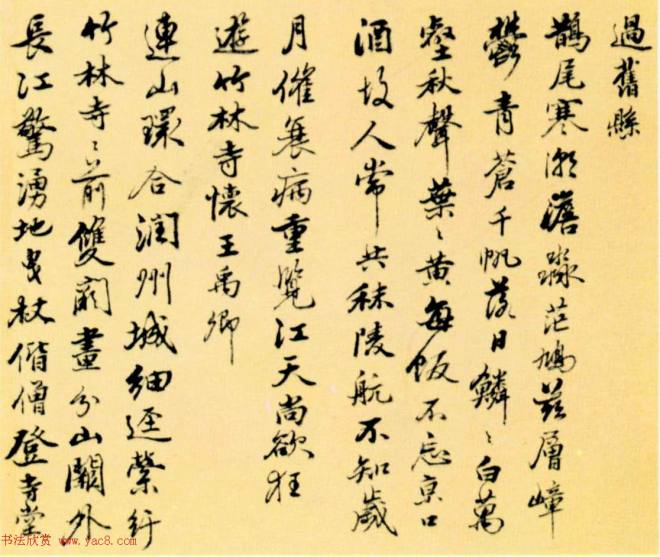 過舊縣
鵲尾寒潮澹渺茫鳩茲層嶂
鬱青蒼千帆落日鱗〻白萬
壑秋聲葉〻黃每飯不忘京口
酒故人常共秣陵航不知歲
月催衰病重覽江天尚欲狂
遊竹林寺懷王禹卿
連山環合潤州城細逕縈紆
竹林寺〻前雙闕畫分山闌外
長江驚湧地曳杖偕僧登寺堂
书法欣赏 www.yac8.com